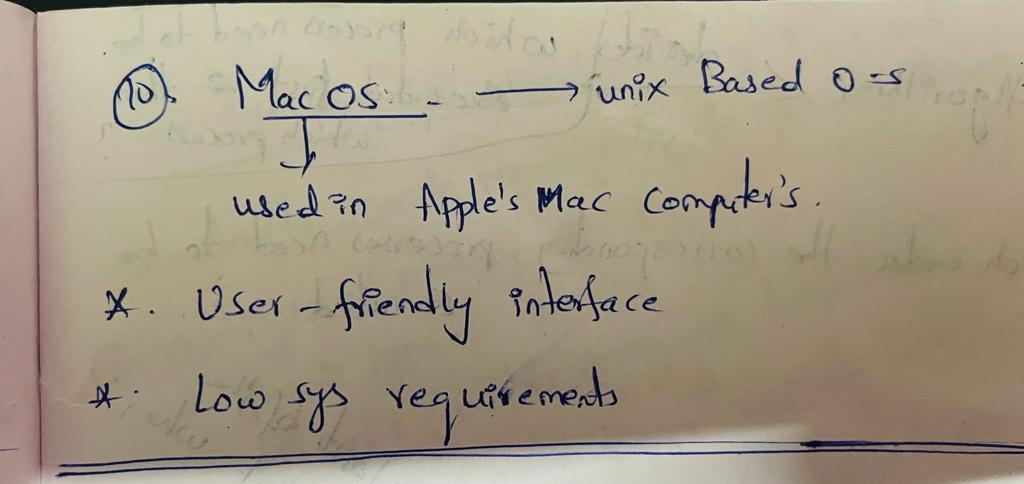 10). Mac OS:- → unix Based O-s
↓
used in Apple's Mac Computer's.
*. User-friendly interface
*. Low sys requirements